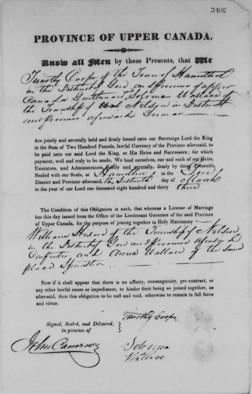 PROVINCE OF UPPER CANADA.
Know all Men by these Presents, that We
Timothy Cooper of the Town of Hamilton
in the District Gore and Province of Upper
Canada Gentleman Solomon Wallace of
the Township of Nelson in District
and Province aforesaid
Are jointly and severally held and firmly bound unto our Sovereign Lord the King
in the Sum of Two Hundred Pounds, lawful Currency of the Province aforesaid, to
be paid unto our said Lord the King, His Heirs and Successors: for which
payment, well and truly to be made, We bind ourselves, our and each of our Heirs,
Executors, and Administrators, jointly and generally, firmly by these Presents,
Sealed with our Seals, at Hamilton in the Gore
District and Province aforesaid, the Sixteenth day of March
in the year of our Lord one thousand eight hundred and thirty three
The Condition of this Obligation is such, that whereas a License of Marriage
has this day issued from the Office of the Lieutenant Governor of the said Province
of Upper Canada, for the purpose of joining together in Holy Matrimony
William of the Township of Nelson
in the District Gore and Province aforesaid
Carpenter and Anna Wallace of the same
place Spinster
Now if it shall appear that there is no affinity, consanguinity, pre-contract, or
any other lawful cause or impediment, to hinder their being so joined together, as
aforesaid, then this obligation to be null and void, otherwise to remain in full force
and virtue.
Signed, Sealed, and Delivered,
in presence of
Timothy Cooper
John Cameron
Solomon
Wallace